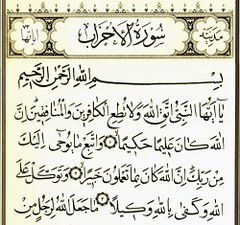 سُورَةُ الْأَحْزَابِ
مدنية
بِسْمِ اللهِ الرَّحْمٰنِ الرَّحِيْمِ
يَا أَيُّهَا النَّبِيُّ اتَّقِ اللهَ وَلَا تُطِعِ الْكَافِرِينَ وَالْمُنَافِقِينَ إِنَّ
اللهَ كَانَ عَلِيمًا حَكِيمًا وَاتَّبِعْ مَا يُوحَى إِلَيْكَ
مِنْ رَبِّكَ إِنَّ اللهَ كَانَ بِمَا تَعْمَلُونَ خَبِيرًا وَتَوَكَّلْ عَلَى
اللهِ وَكَفَى بِاللهِ وَكِيلًا مَا جَعَلَ اللهُ لِرَجُلٍ مِنْ